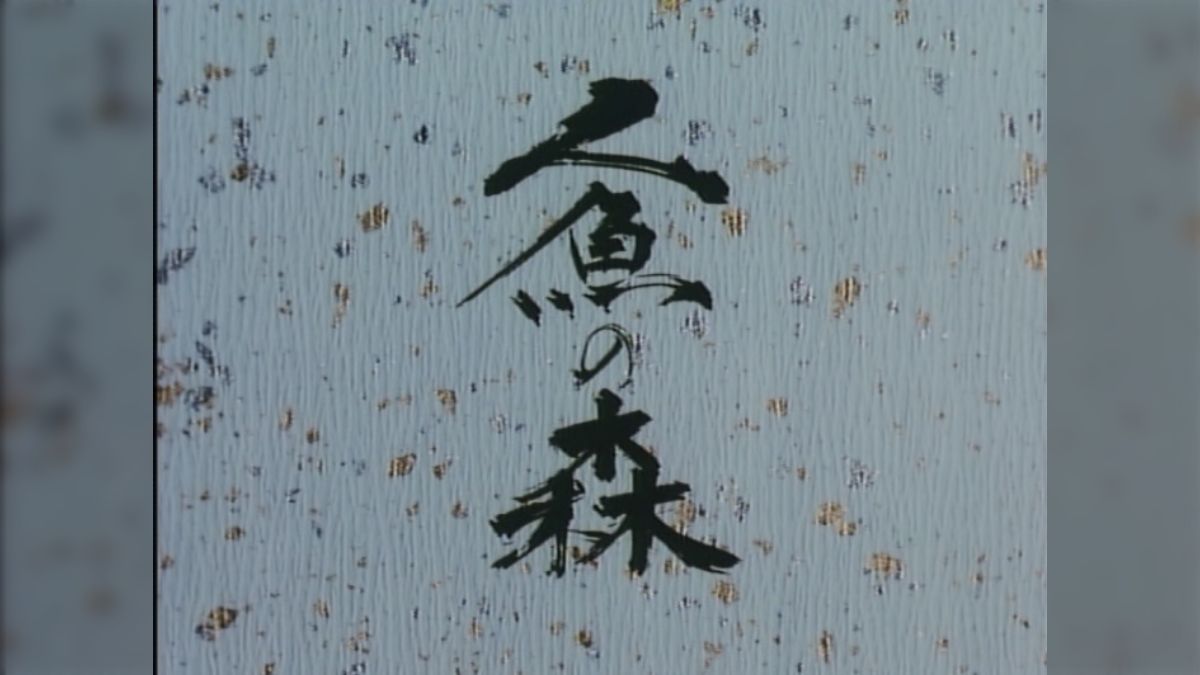 人魚の森